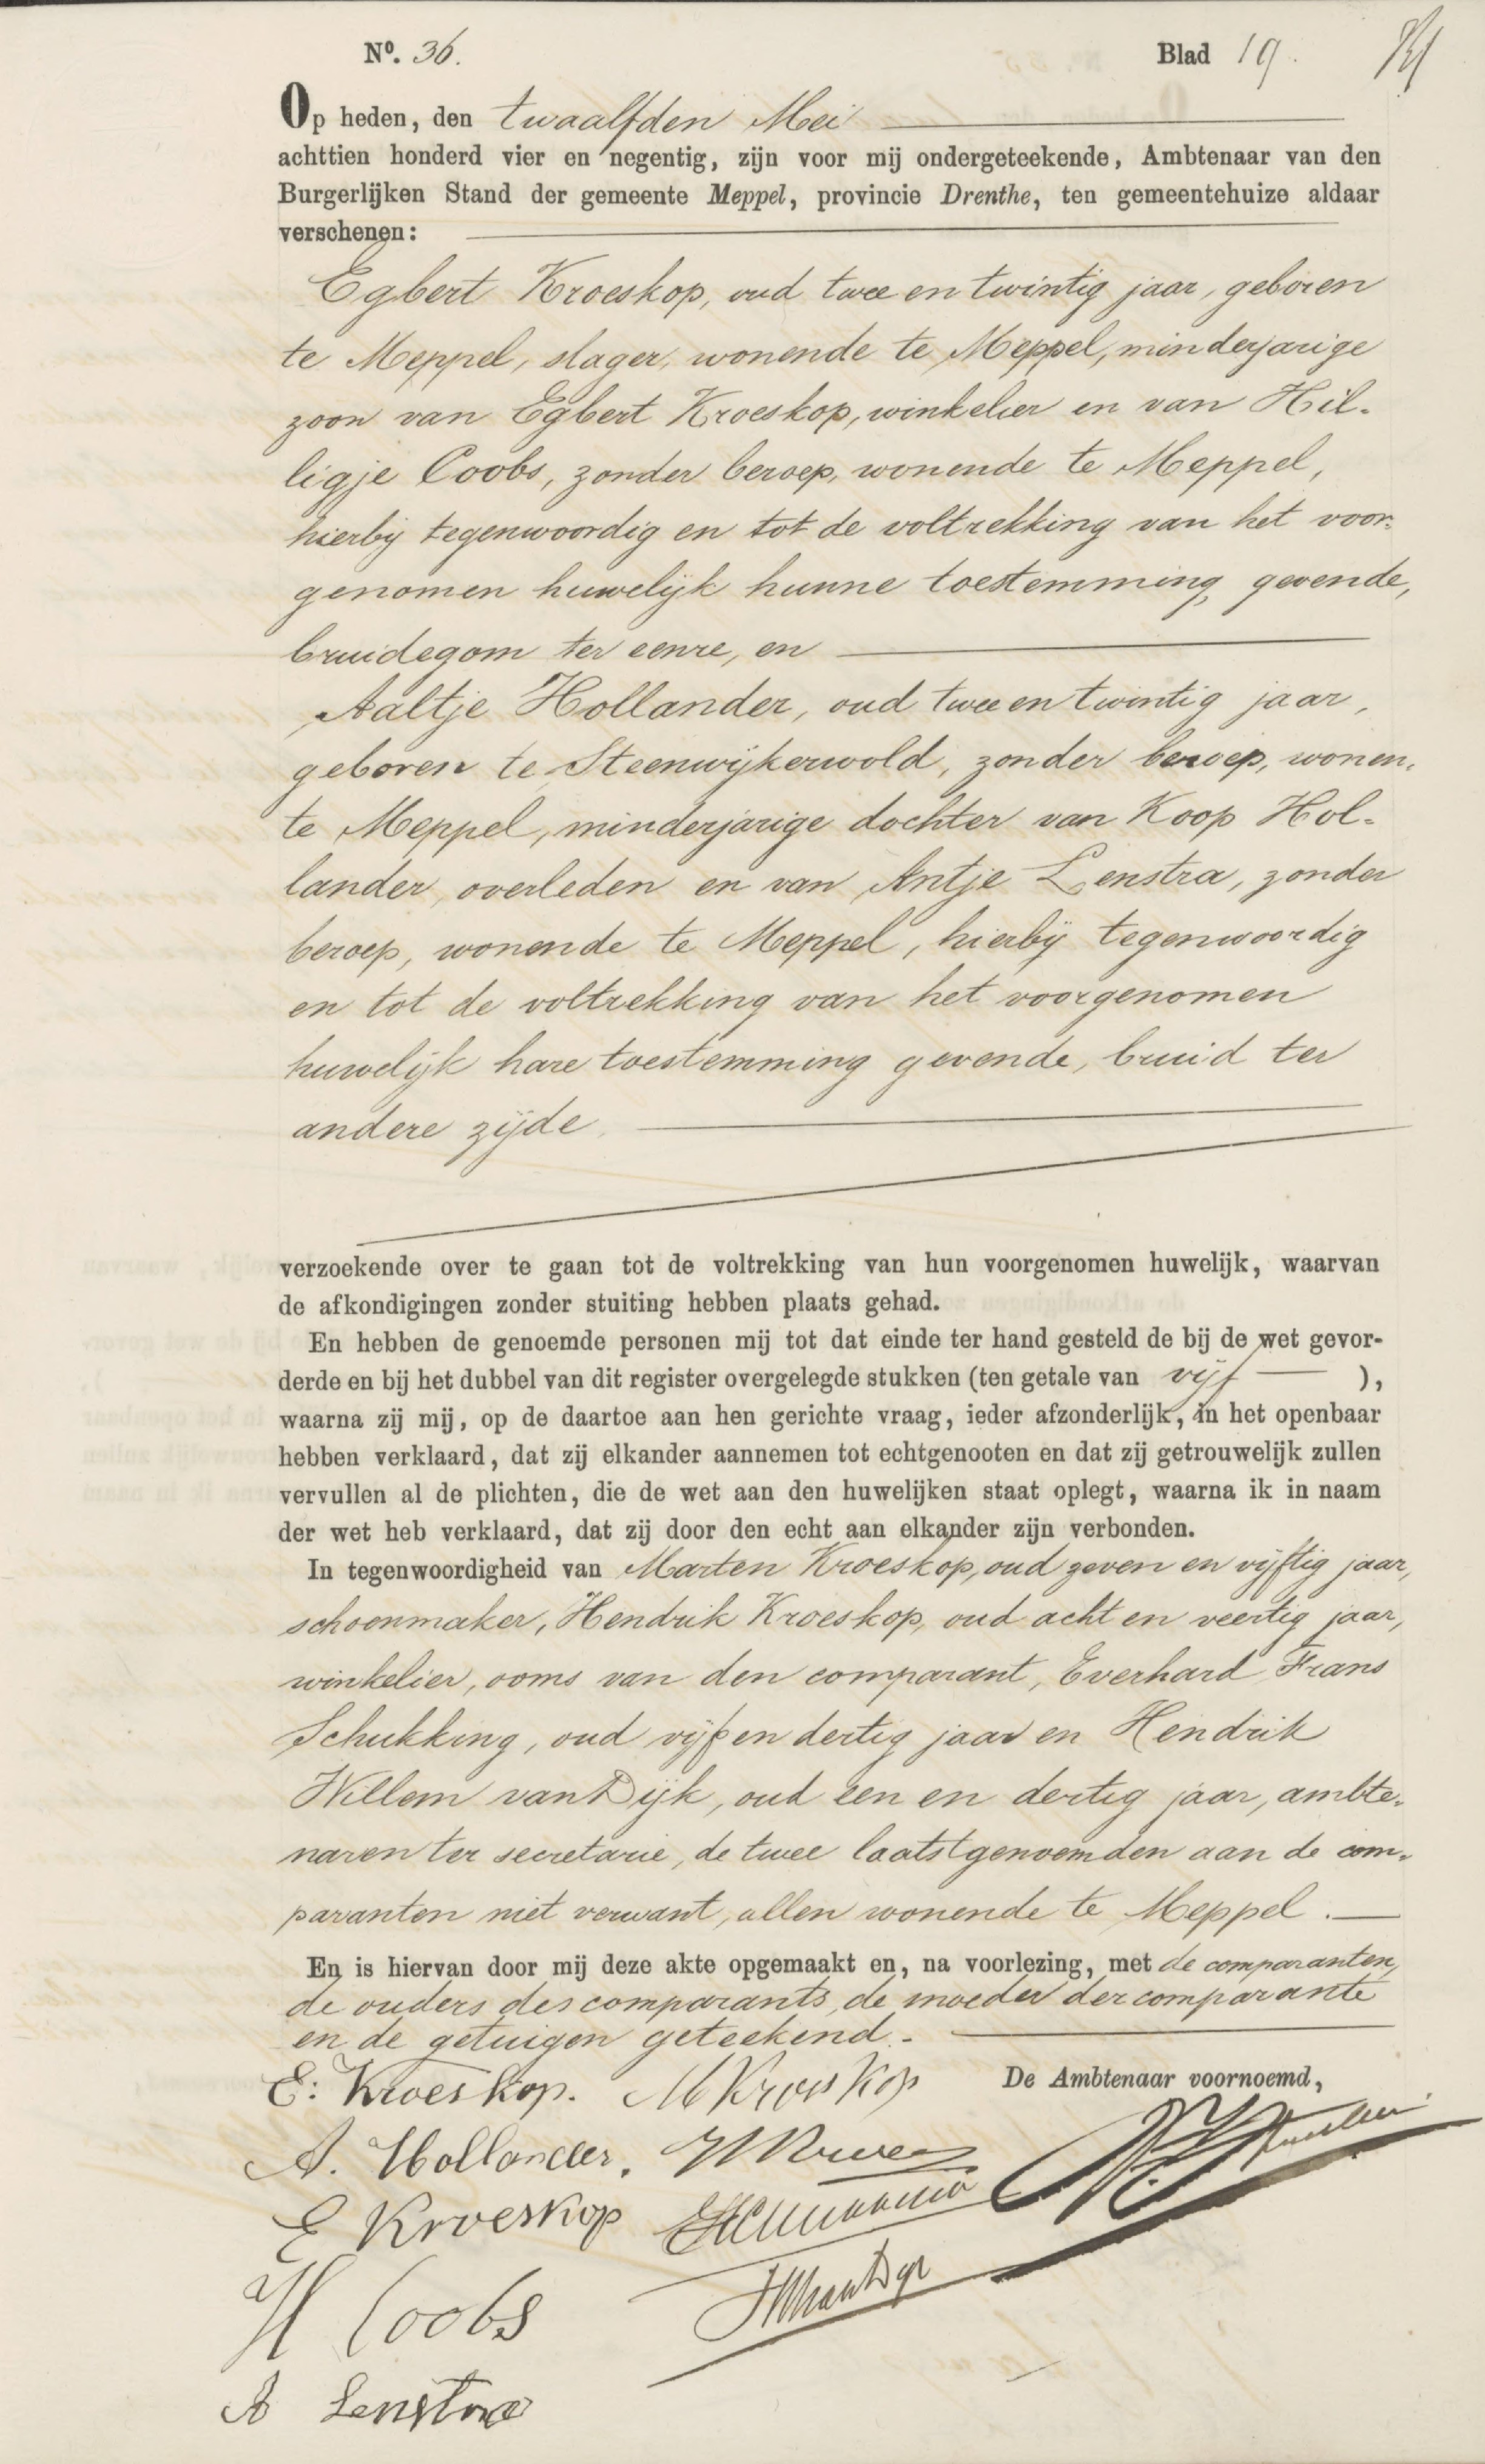 Nº. 36. Blad 19.
Op heden, den twaalfden Mei
achttien honderd vier en negentig, zijn voor mij ondergeteekende, Ambtenaar van den
Burgerlijken Stand der gemeente Meppel, provincie Drenthe, ten gemeentehuize aldaar
verschenen:
Egbert Kroeskop, oud twee en twintig jaar, geboren
te Meppel, slager, wonende te Meppel, minderjarige
zoon van Egbert Kroeskop, winkelier en van Hil-
ligje Coobs, zonder beroep, wonende te Meppel,
hierbij tegenwoordig en tot de voltrekking van het voor-
genomen huwelijk hunne toestemming gevende,
bruidegom ter eenre, en
Aaltje Hollander, oud twee en twintig jaar,
geboren te Steenwijkerwold, zonder beroep, wonen-
te Meppel, minderjarige dochter van Koop Hol-
lander, overleden en van Antje Lenstra, zonder
beroep, wonende te Meppel, hierbij tegenwoordig
en tot de voltrekking van het voorgenomen
huwelijk hare toestemming gevende, bruid ter
andere zijde.
verzoekende over te gaan tot de voltrekking van hun voorgenomen huwelijk, waarvan
de afkondigingen zonder stuiting hebben plaats gehad.
En hebben de genoemde personen mij tot dat einde ter hand gesteld de bij de wet gevor-
derde en bij het dubbel van dit register overgelegde stukken (ten getale van vijf ),
waarna zij mij, op de daartoe aan hen gerichte vraag, ieder afzonderlijk, in het openbaar
hebben verklaard, dat zij elkander aannemen tot echtgenooten en dat zij getrouwelijk zullen
vervullen al de plichten, die de wet aan den huwelijken staat oplegt, waarna ik in naam
der wet heb verklaard, dat zij door den echt aan elkander zijn verbonden.
In tegenwoordigheid van Marten Kroeskop, oud zeven en vijftig jaar,
schoenmaker, Hendrik Kroeskop, oud acht en veertig jaar,
winkelier, ooms van den comparant, Everhard Frans
Schukking, oud vijf en dertig jaar en Hendrik
Willem van Dijk, oud een en dertig jaar, ambte-
naren ter secretarie, de twee laatstgenoemden aan de com-
paranten niet verwant, allen wonende te Meppel.
En is hiervan door mij deze akte opgemaakt en, na voorlezing, met de comparanten,
de ouders des comparants, de moeder der comparante
en de getuigen geteekend.-
E: Kroeskop. M Kroeskop De Ambtenaar voornoemd,
A. Hollander.
E Kroeskop
HW van Dijk
H Coobs
A Lenstra